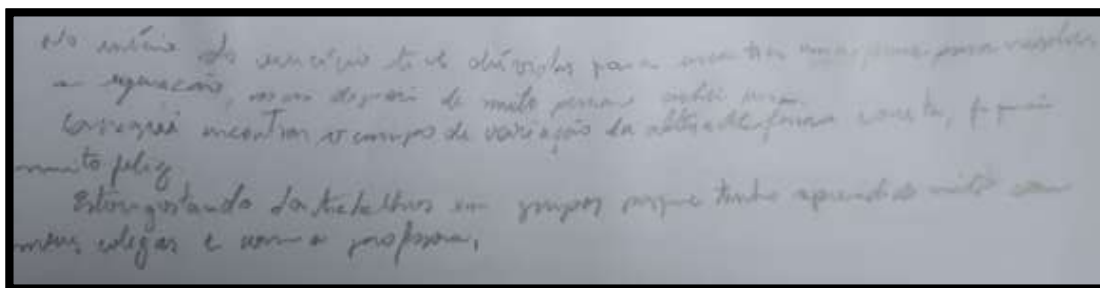 No início do exercício tive dúvidas para encontrar uma para resolver
a equação, mas depois de muito pensar achei uma.
Consegui encontrar o campo de variação da letra de forma correta, fiquei
muito feliz
Estou gostando do trabalhos em grupos porque tenho aprendido muito com
meus colegas e com a professora,